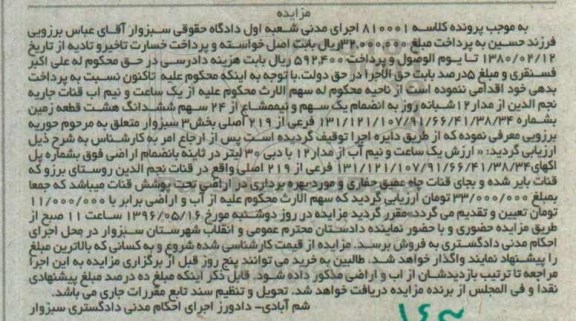 مزایده
به موجب پرونده کلاسه ۸۱۰۰۰۱ اجرای مدنی شعبه اول دادگاه حقوقی سبزوار آقای عباس برزویی
فرزند حسین به پرداخت مبلغ ۳۲,۰۰۰,۰۰۰ریال بابت اصل خواسته و پرداخت خسارت تاخیرو تادیه از تاریخ
۱۳۸۰/۰۲/۱۲ تا یوم الوصول و پرداخت ۵۹۲,۴۰۰ ریال بابت هزینه دادرسی در حق محکوم له علی اکبر
فسنقری و مبلغ ۵درصد بابت حق الاجرا در حق دولت.با توجه به اینکه محکوم علیه تاکنون نسبت به پرداخت
بدهی خود اقدامی ننموده است از ناحیه محکوم له سهم الارث محکوم علیه از یک ساعت و نیم اب قنات جاریه
نجم الدین از مدار ۱۲شبانه روز به انضمام یک سهم و نیم مشاع از ۲۴ سهم ششدانگ هشت قطعه زمین
بشماره ۱۳۱/۱۲۱/۱۰۷/۹۱/۶۶/۴۱/۳۸/۳۴ فرعی از ۲۱۹ اصلی بخش۳ سبزوار متعلق به مرحوم حوریه
برزویی معرفی نموده که از طریق دایره اجرا توقیف گردیده است پس از ارجاع امر به کارشناس به شرح ذیل
ارزیابی گردید: * ارزش یک ساعت و نیم آب از مدار۱۲ با دبی ۳۰ لیتر در ثاینه بانضمام اراضی فوق بشماره پل
اکهای۱۳۱/۱۲۱/۱۰۷/۹۱/۶۶/۴۱/۳۸/۳۴ فرعی از ۲۱۹ اصلی واقع در قنات نجم الدین روستای برزو که
قنات بایر شده و بجای قنات چاه عمیق حفاری و مورد بهره برداری در اراضی تحت پوشش قنات میباشد که جمعا
بمبلغ ۳۳/۰۰۰/۰۰۰ تومان ارزیابی گردید که سهم الارث محکوم علیه از آب و اراضی برابر با ۱۱/۰۰۰/۰۰۰
تومان تعیین و تقدیم می گردد.مقرر گردید مزایده در روز دوشنبه مورخ ۱۳۹۶/۰۵/۱۶ ساعت ۱۱ صبح از
طریق مزایده حضوری و با حضور نماینده دادستان محترم عمومی و انقلاب شهرستان سبزوار در محل اجرای
احکام مدنی دادگستری به فروش برسد. مزایده از قیمت کارشناسی شده شروع و به کسانی که بالاترین مبلغ
را پیشنهاد نمایند واگذار خواهد شد. طالبین به خرید می توانند پنج روز قبل از برگزاری مزایده به این اجرا
مراجعه تا ترتیب بازدیدشان از اب و اراضی مذکور داده شود. قابل ذکر اینکه مبلغ ده درصد مبلغ پیشنهادی
نقدا و فی المجلس از برنده مزایده دریافت خواهد شد. تحویل و تنظیم سند تابع مقررات جاری می باشد.
شم آبادی- دادورز اجرای احکام مدنی دادگستری سبزوار